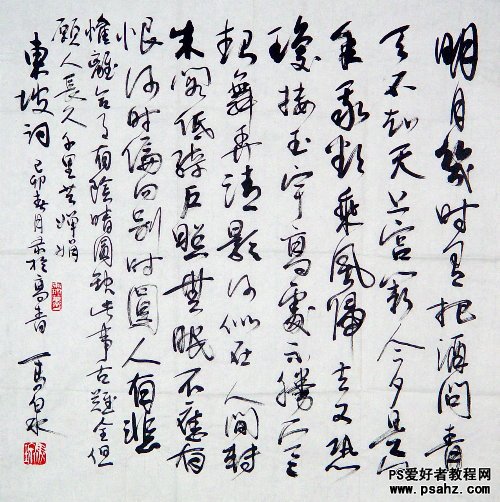 明月幾时有把酒问青
天不知天上宫阙今夕是何
年我欲乘風归去又恐
瓊楼玉宇高處不勝寒
起舞弄清影何似在人間轉
朱阁低绮户照無眠不應有
恨何时偏向别时圓人有悲
懽離合月有陰晴圓缺此事古難全但
願人長久千里共嬋娟
東坡词
己卯春月於高青
PS爱好者教程网
www.psahz.com